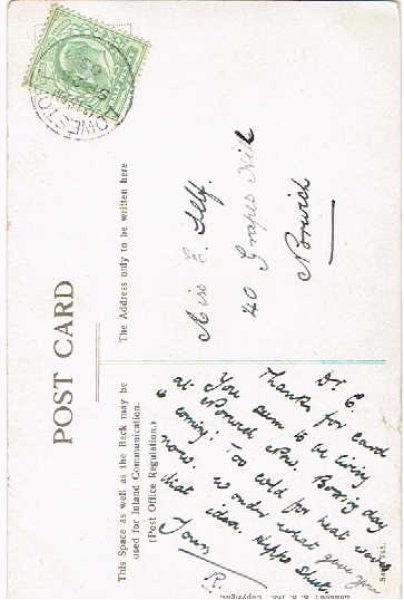 POST CARD
This Space as well as the Back may be
used for Inland Communication.
(Post Office Regulation.)
The Address only to be written here
LOWESTO
Dr E.
Thanks for card
You seem to be living
at Norwich now. Boxing day
is coming! Too cold for heat wave
now. Wonder what give you
that idea.
Yours
R.
Miss E. Self.
40 Grapes Hill
Norwich
Copyright.